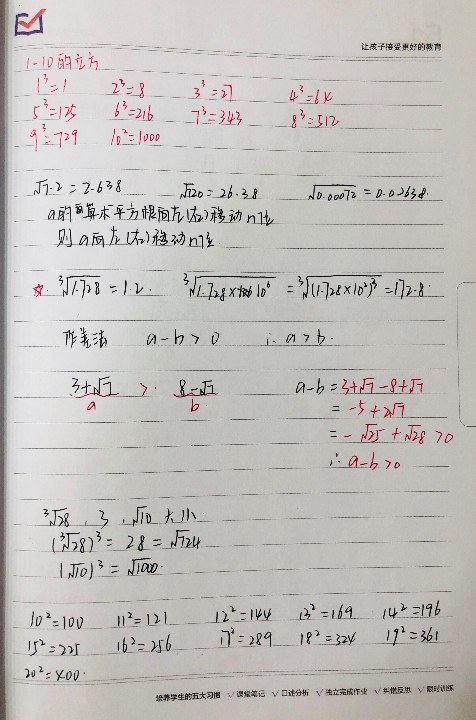 让孩子接受更好的教育
1-10的立方
1³=1 2³=8 3³=27 4³=64
5³=125 6³=216 7³=343 8³=512
9³=729 10²=1000
√7.2=2.638 √720=26.38 √0.00072=0.02638.
a的算术平方根向左(右)移动n位
则a向左(右)移动n位.
☆. ³√1.728=1.2. ³√1.728×10⁶ = ³√(1.728×10²)³=172.8.
作差法 a-b>0 ∴a>b.
3+√7 > 8-√7 a-b=3+√7-8+√7
a b. =-5+2√7
=-√25+√28>0
∴a-b>0
³√28, 3, √10 大小.
(³√28)³=28=√724
(√10)³=√1000.
10²=100 11²=121 12²=144 13²=169 14²=196
15²=225 16²=256 17²=289 18²=324 19²=361
20²=400.
培养学生的五大习惯 √课堂笔记 √口述分析 √独立完成作业 √纠错反思 √限时训练